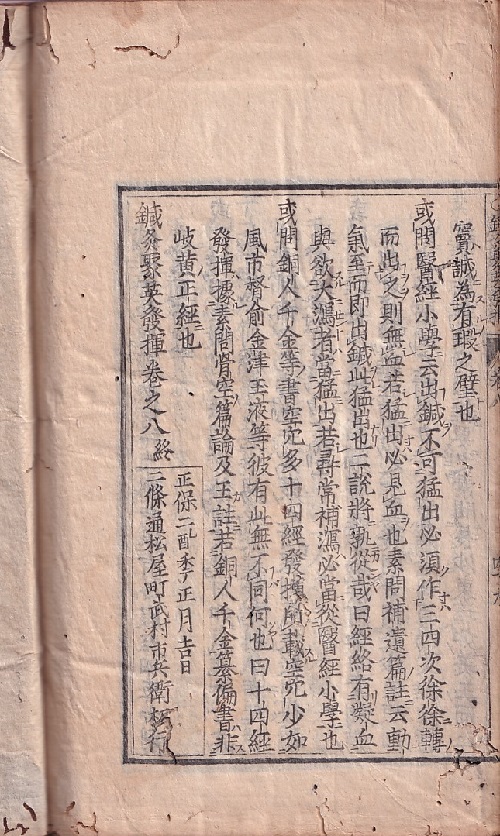 竇誠為有瑕之璧也
或問醫經小學云出鍼不可猛出必須作三四次徐徐轉
而出之則無血若猛出必見血也素問補遺篇註云動
氣至而即出鍼此猛出也二說將孰從哉曰經絡有凝血
與欲大瀉者當猛出若尋常補瀉必當從醫經小學也
或問銅人千金等書空穴多十四經發揮所載空穴少如
風市督俞金津玉液等彼有此無不同何也曰十四經
發揮據素問骨空篇論及王註若銅人千金纂徧書非
岐黃正經也
鍼灸聚英發揮卷之八終
正保二乙酉季正月吉日
二條通松屋町武村市兵衛板行